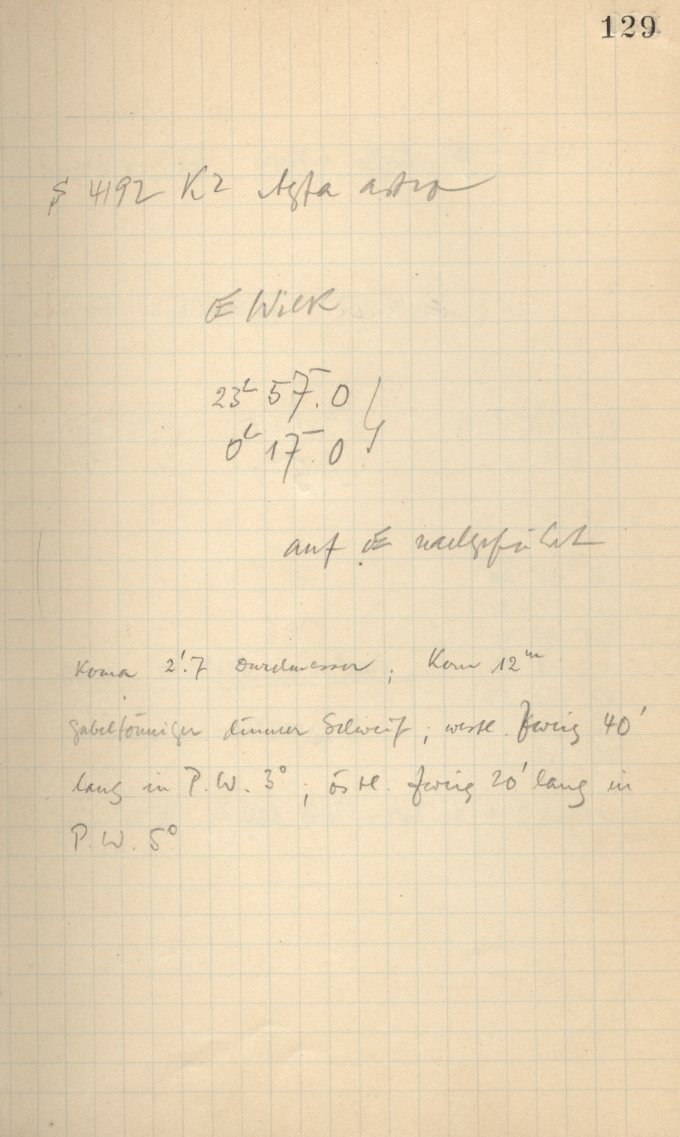 129
4192 K2 Agfa astro
Wilk
23h 57m.0
0h 17m.0
auf nachgeführt
Koma 2'.7 Durchmesser; Kern 12m
gabelförmiger dünner Schweif; westl. Zweig 40'
lang in P.W. 3°; östl. Zweig 20' lang in
P.W. 5°